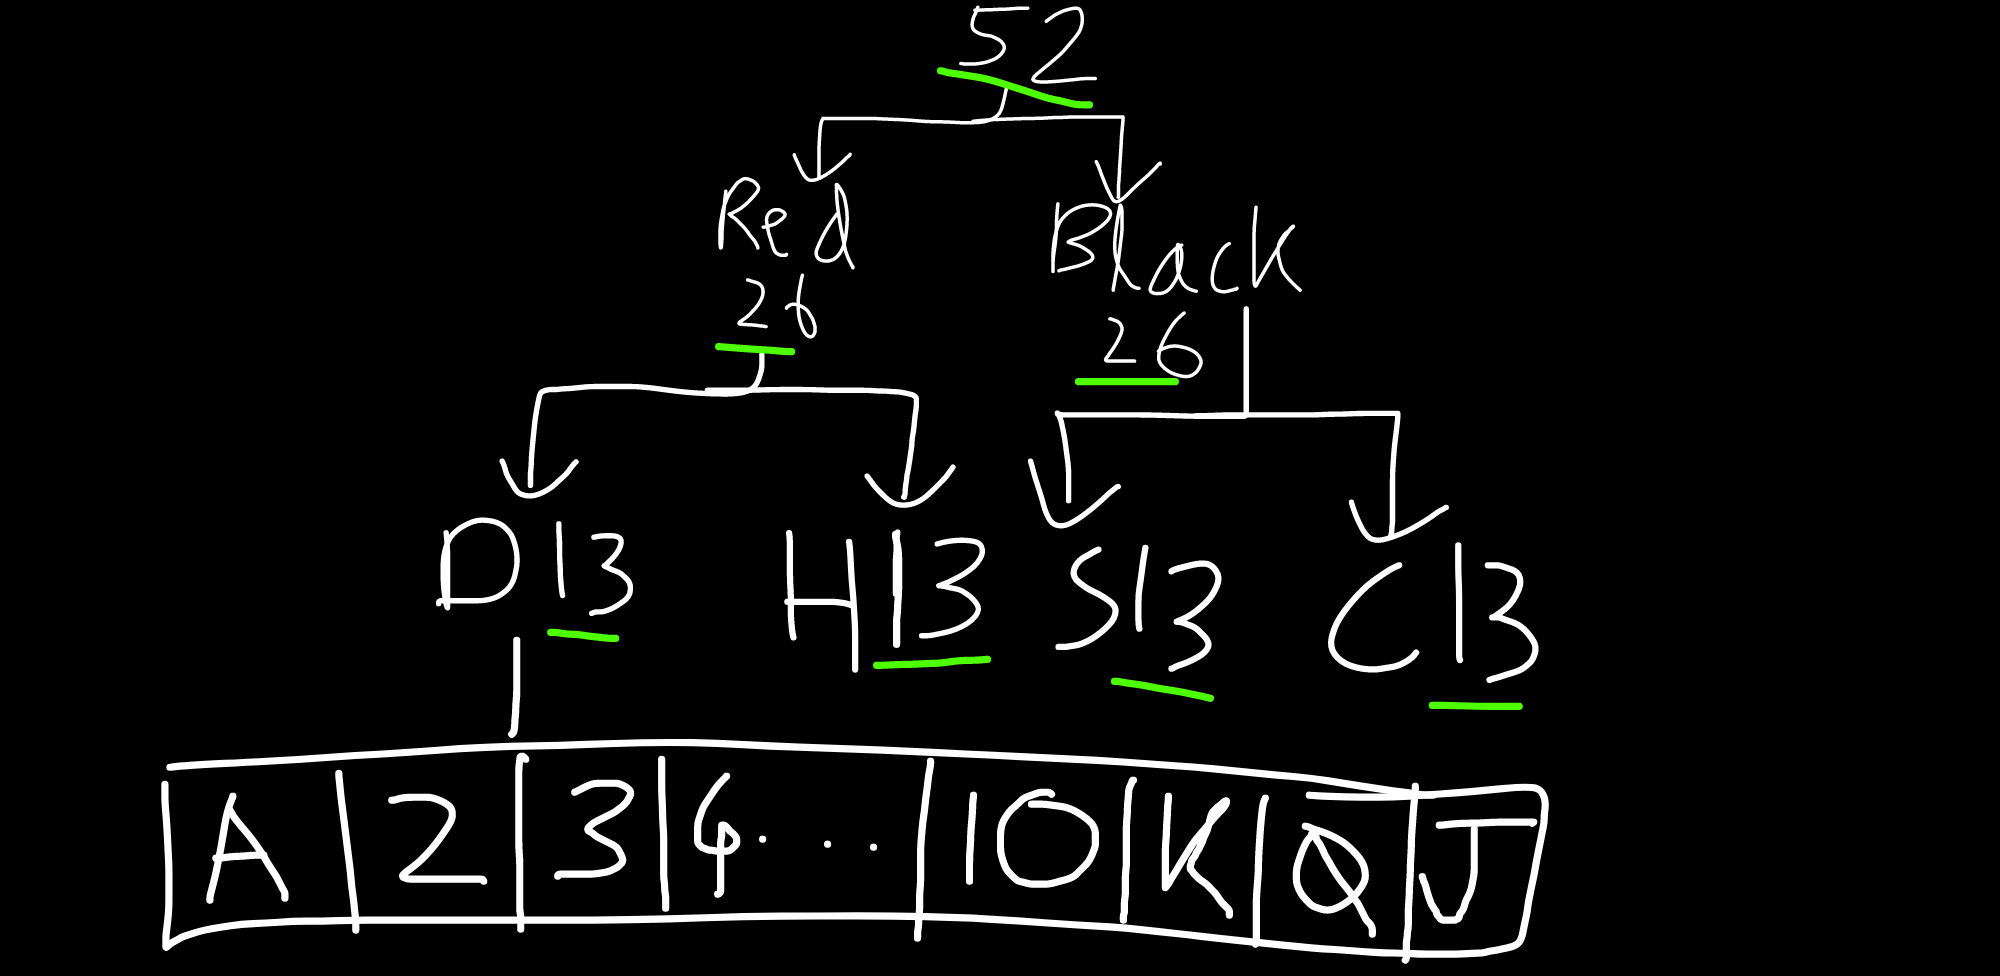 52
Red Black
26 26
D13 H13 S13 C13
A 2 3 4... 10 K Q J